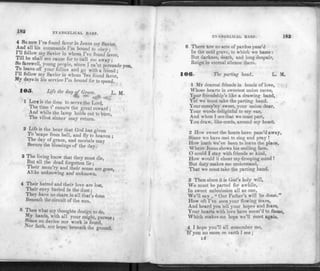 182 EVANGELICAL HARP.
4 Se sure I've found favor in Jesus my Savior,
And all his commands I'm bound to obey;
I'll follow my Savior in whom I've found favor,
Till he shall see cause for to call me away:
So farewell, young people, since I can't persuade you,
To leave off your follies and go with a friend;
I'll follow my Savior in whom I've found favor,
My days in his service I'm bound for to spend.
105. Life the day of Grace. L. M.
1 Life is the time to serve the Lord,
The time t' ensure the great reward;
And while the lamp holds out to burn,
The vilest sinner may return.
2 Life is the hour that God has given
To 'scape from hell, and fly to heaven;
The day of grace, and mortals may
Secure the blessings of the day.
3 The living know that they must die,
But all the dead forgotten lie;
Their mem'ry and their sense are gone,
Alike unknowing and unknown.
4 Their hatred and their love are lost,
Their envy buried in the dust;
They have no share in all that's done
Beneath the circuit of the sun.
5 Then what my thoughts design to do,
My hands, with all your might, pursue;
Since no device nor work is found,
Nor faith, nor hope, beneath the ground.
EVANGELICAL HARP. 183
6 There are no acts of pardon pass'd
In the cold grave, to which we haste:
But darkness, death, and long despair,
Reign in eternal silence there.
106. The parting hand. L. M.
1 My dearest friends in bonds of love,
Whose hearts in sweetest union move,
Your friendship's like a drawing band,
Yet we must take the parting hand.
Your company sweet, your union dear,
Your words delightful to my ear,
And when I see that we must part,
You draw, like cords, around my heart.
2 How sweet the hours have pass'd away,
Since we have met to sing and pray!
How loath we've been to leave the place,
Where Jesus shows his smiling face.
O could I stay with friends so kind,
How would it cheer my drooping mind!
But duty makes me understand,
That we must take the parting hand.
3 Then since it is God's holy will,
We must be parted for awhile,
In sweet submission all as one,
We'll say, "Our Father's will be done."
How oft I've seen your flowing tears,
And heard you tell your hopes and fears,
Your hearts with love have seem'd to flame,
Which makes me hope we'll meet again.
4 I hope you'll all remember me,
If you no more on earth I see;